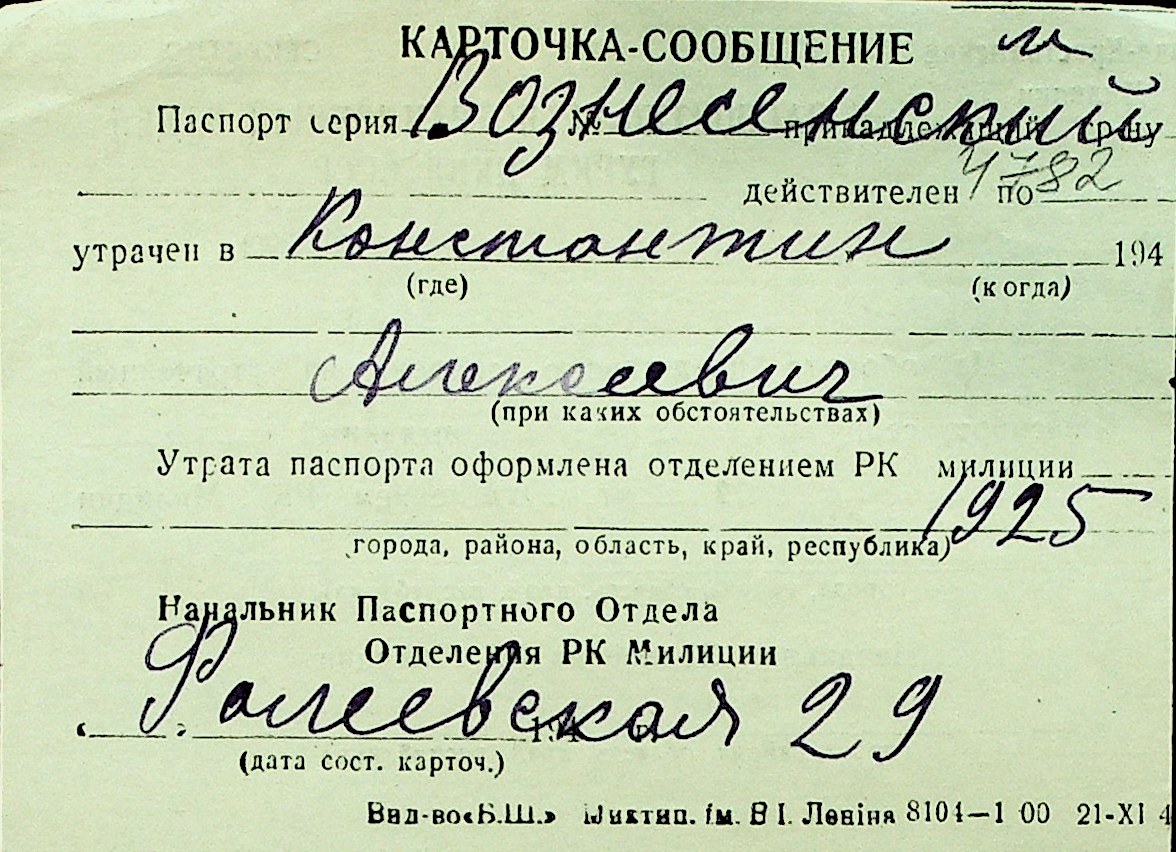 КАРТОЧКА-СООБЩЕНИЕ м
Паспорт серия № принадлежащий гр-ну
Вознесенский
действителен по
4782
утрачен в Константин 194
(где) (когда)
Алексеевич
(при каких обстоятельствах)
Утрата паспорта оформлена отделением РК милиции
1925
города, района, область, край, республика)
Начальник Паспортного Отдела
Отделения РК Милиции
Фалеевская 29
(дата сост. карточ.)
Вид-во «Б.Ш.» ім. В І. Леніна 8104—1 00 21-XI 4